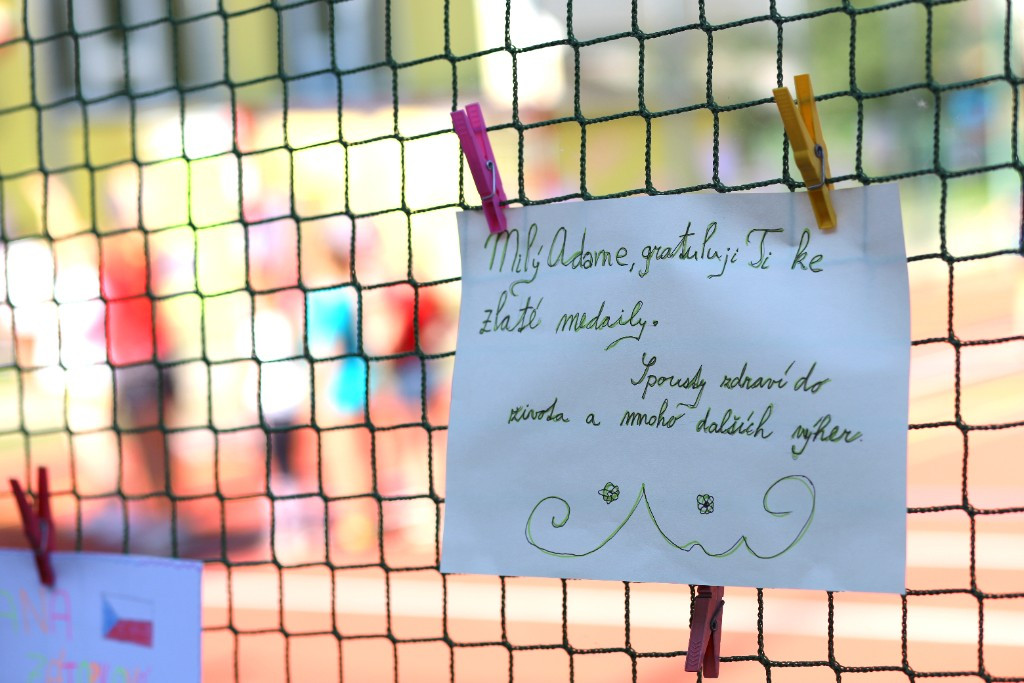 Milý Adame, gratuluji Ti ke
zlaté medaily.
Spousty zdraví do
života a mnoho dalších výher.
ANA